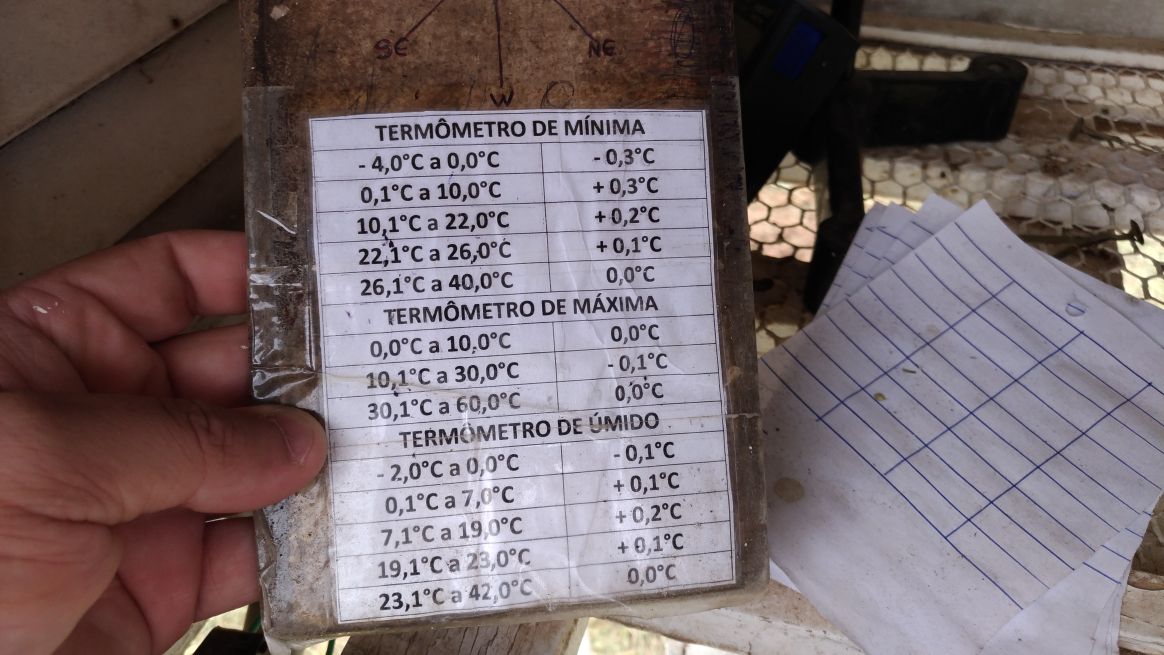 SE NE
W
TERMÔMETRO DE MÍNIMA
- 4,0°C a 0,0°C - 0,3°C
0,1°C a 10,0°C + 0,3°C
10,1°C a 22,0°C + 0,2°C
22,1°C a 26,0°C + 0,1°C
26,1°C a 40,0°C 0,0°C
TERMÔMETRO DE MÁXIMA
0,0°C a 10,0°C 0,0°C
10,1°C a 30,0°C - 0,1°C
30,1°C a 60,0°C 0,0°C
TERMÔMETRO DE ÚMIDO
- 2,0°C a 0,0°C - 0,1°C
0,1°C a 7,0°C + 0,1°C
7,1°C a 19,0°C + 0,2°C
19,1°C a 23,0°C + 0,1°C
23,1°C a 42,0°C 0,0°C